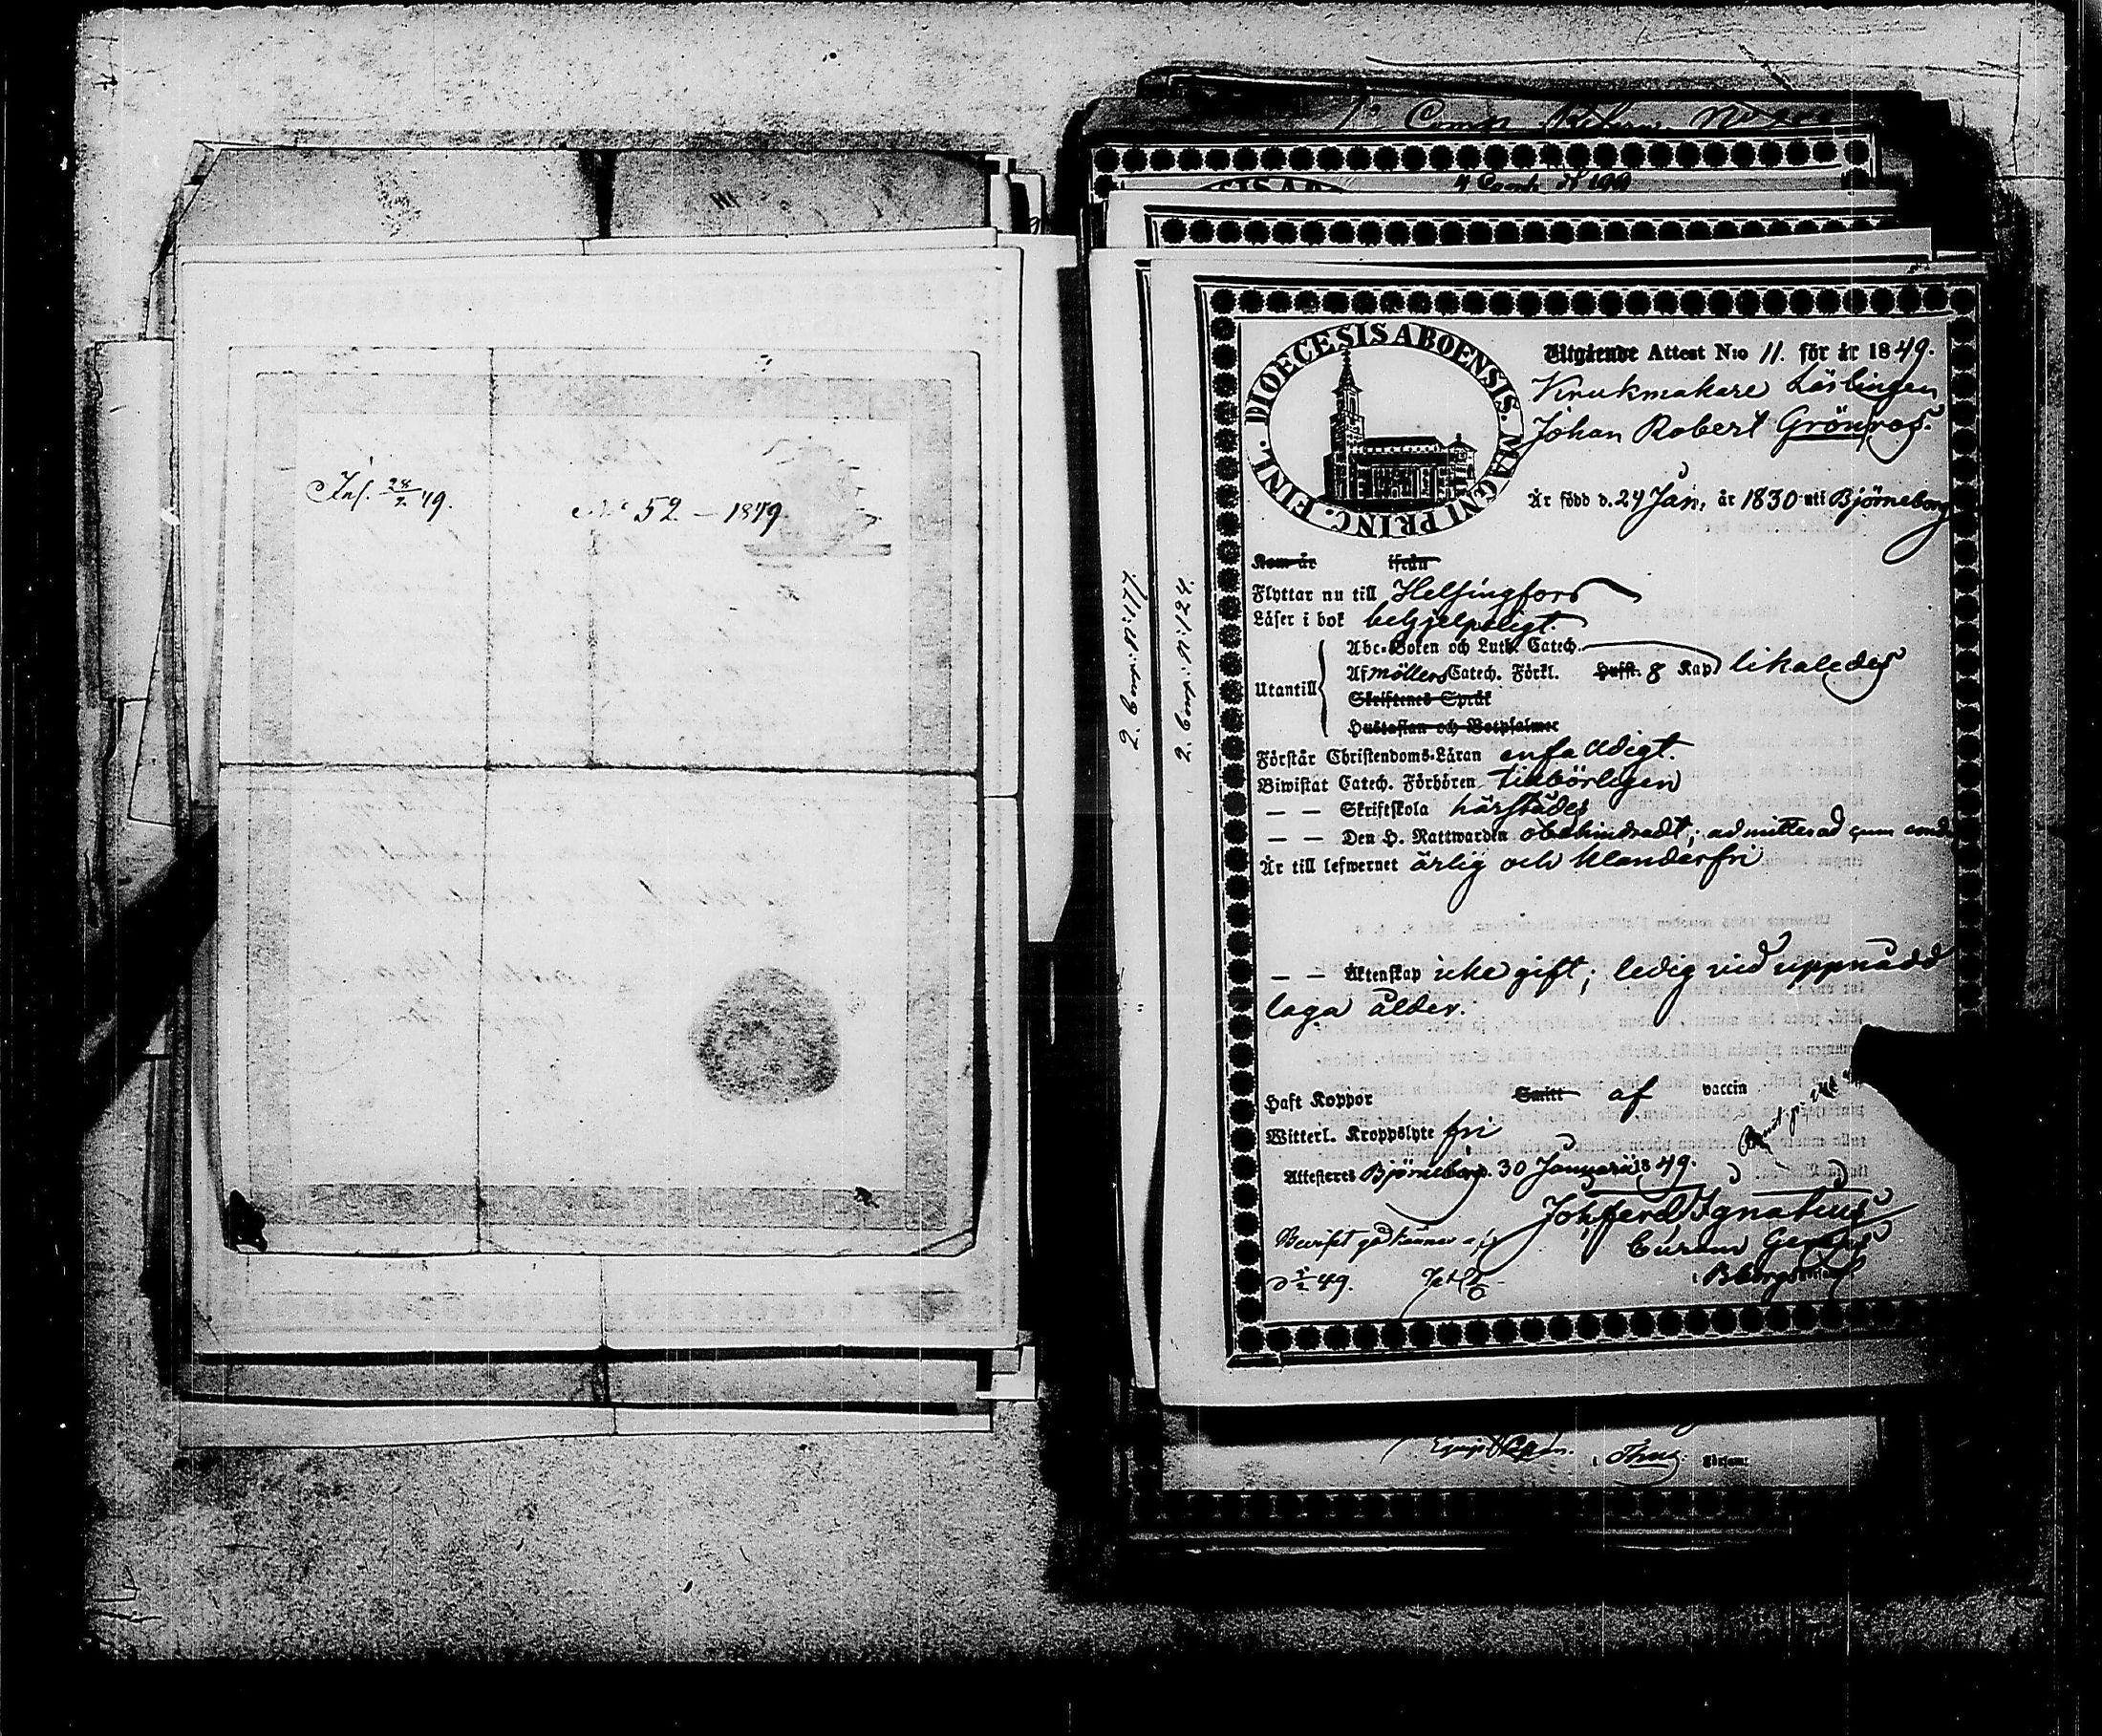 Inf. 28/2 49.
No 52 – 1849
1. Comp.
4 Comp. N 199
2. Comp: N:177.
2. Comp: N:124.
DIOECESIS ABOENSIS. MAGNI PRINC. FINL.
Utgående Attest N:o 11. för år 1849.
Krukmakare Lärlingen
Johan Robert Grönroos.
Är född d. 24 Jan. år 1830 uti Björneborg
Kom år ifrån
Flyttar nu till Helsingfors
Läser i bok behjelpeligt.
Utantill
Abc-Boken och Luth. Catech.
Af Möllers Catech. Förkl. Hufst. 8 Kap likaledes
Skriftenes Språk
Hustaflan och Botpsalmer
Förstår Christendoms-Läran enfaldigt.
Biwistat Catech. Förhören tillbörligen
— — Skriftskola härstädes
— — Den H. Nattwarden obehindradt; admitterad
Är till lefwernet ärlig och klanderfri
— — Äktenskap icke gift; ledig vid uppnådd
laga ålder.
Haft Koppor Smitt af vaccin
Witterl. Kroppslyte fri
Attesteras Björneborg d. 30 Januarii 1849.
Joh. Ferd. Ignatius
Beviset
d 49.
i Bborgs
i Thus. Förs